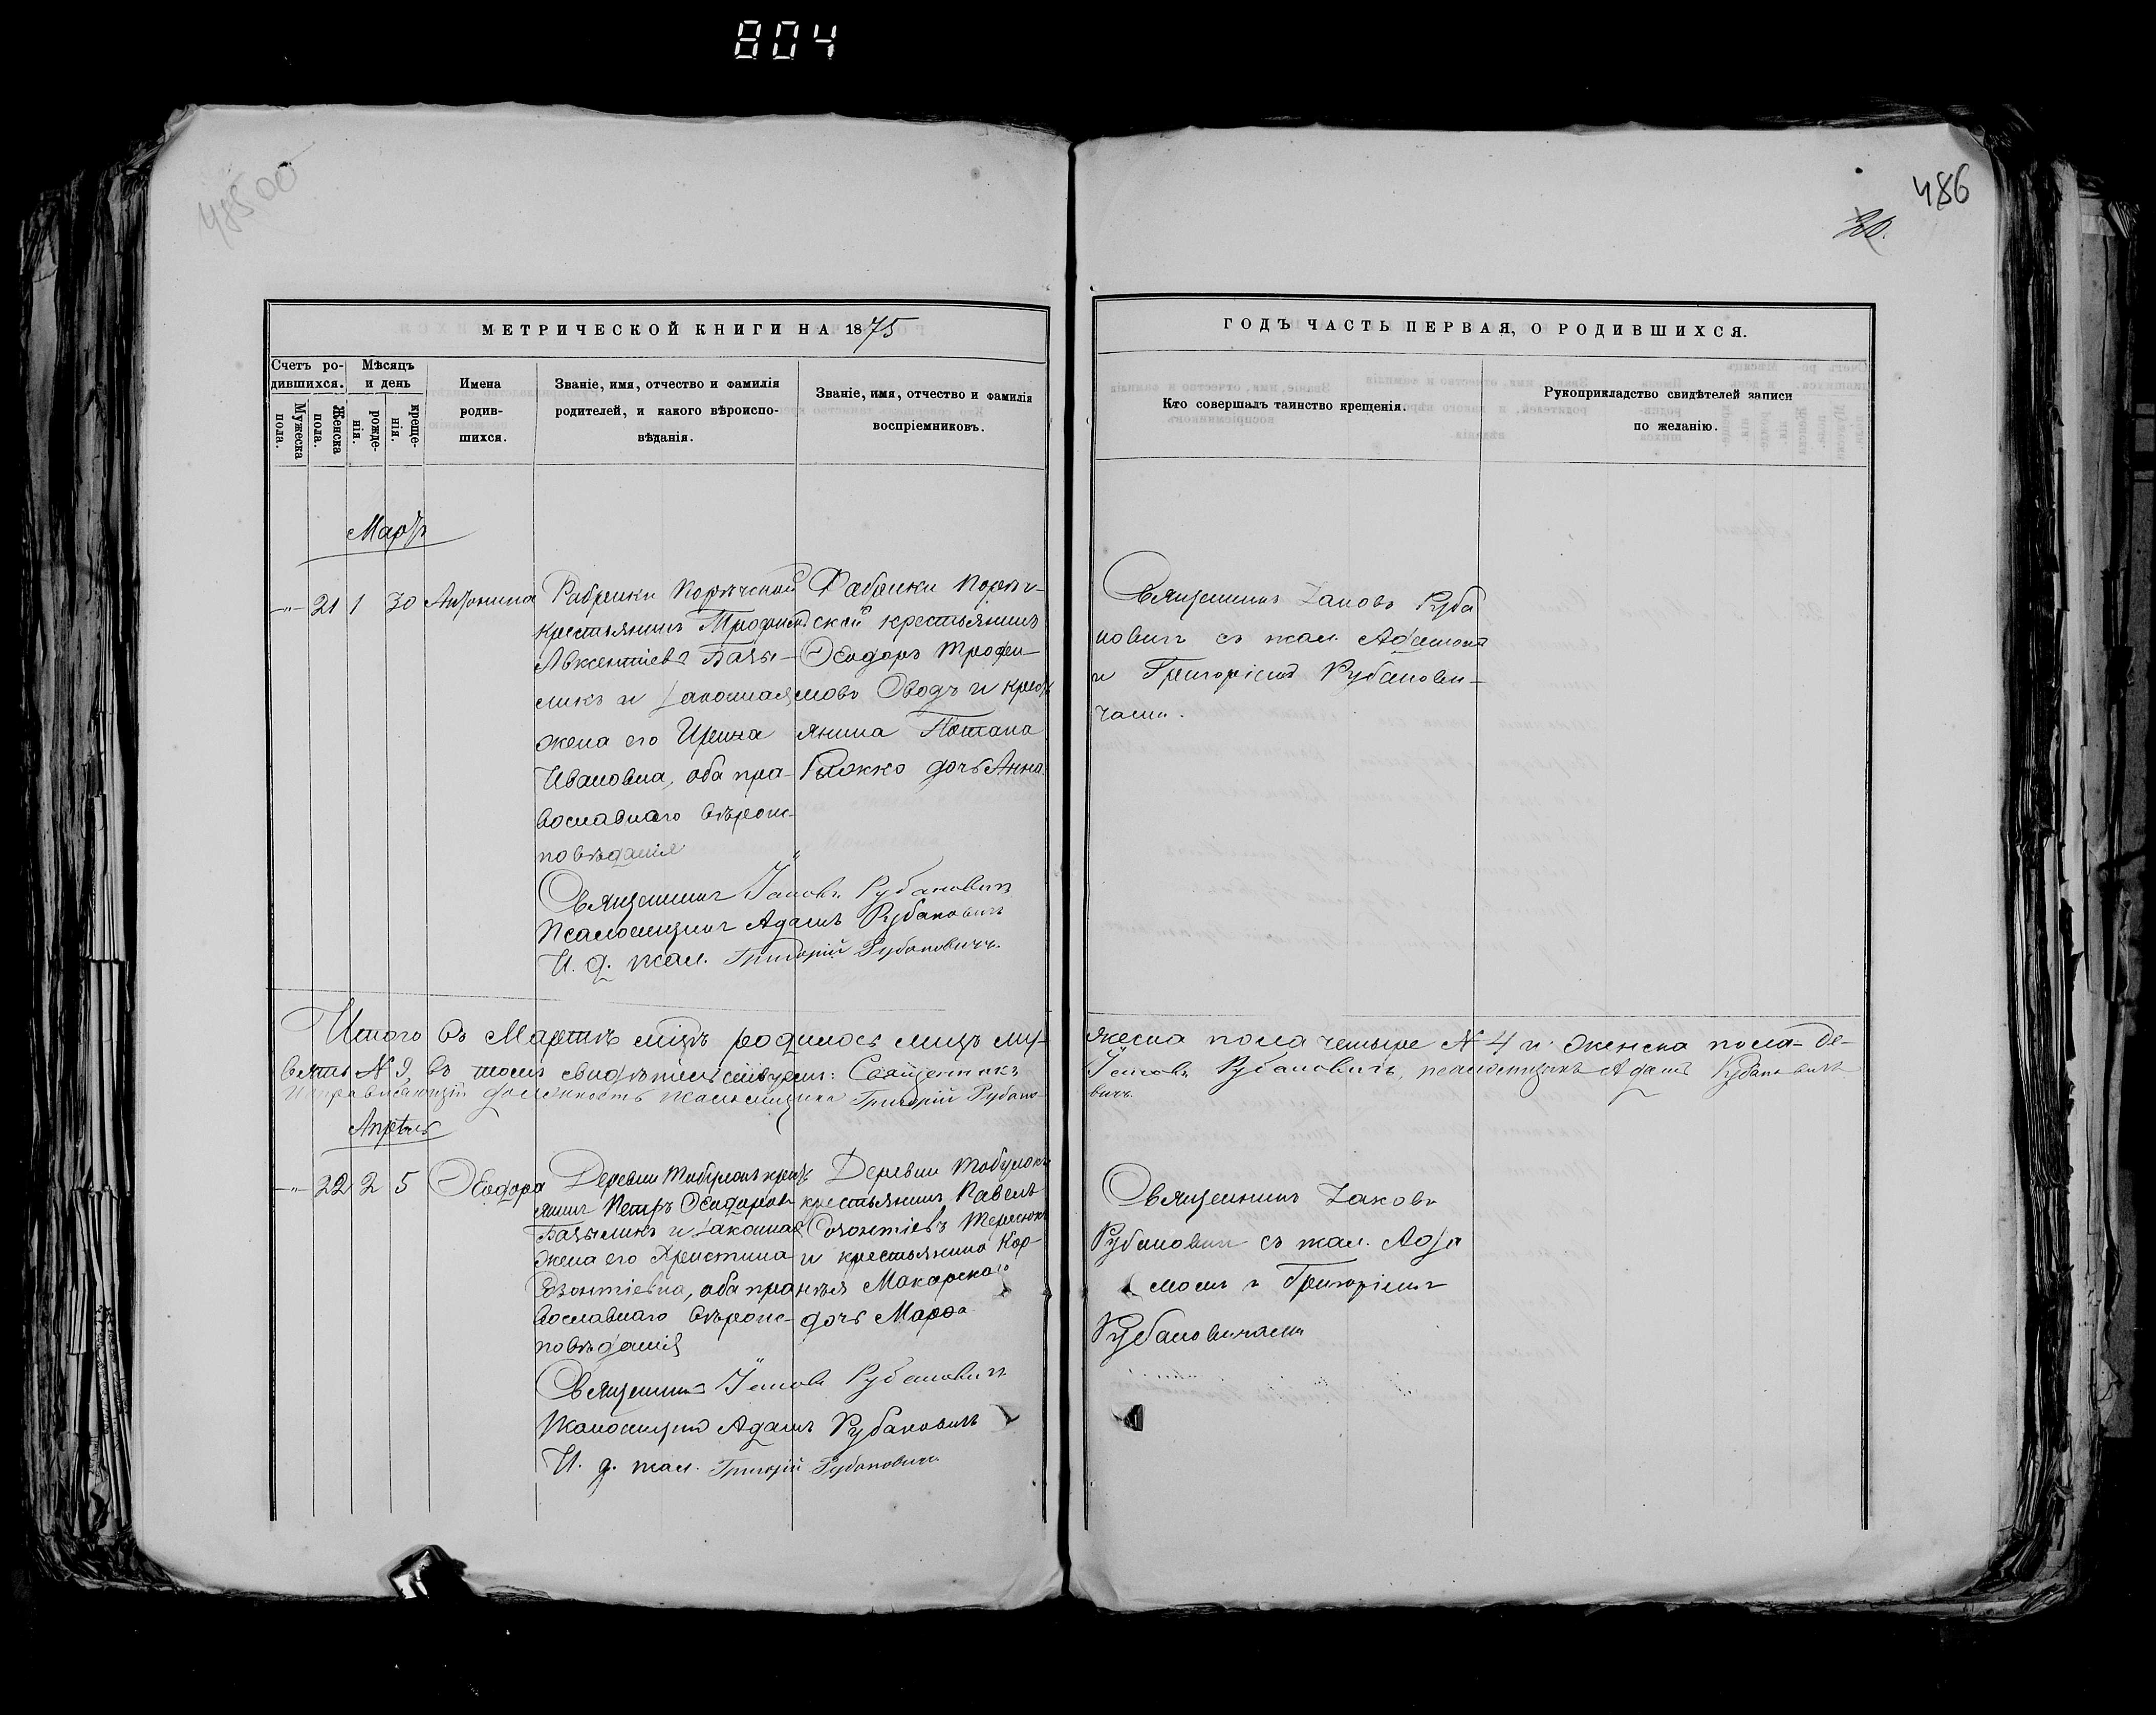 804
486
20.
МЕТРИЧЕСКОЙ КНИГИ НА 1875
ГОДЪ ЧАСТЬ ПЕРВАЯ, О РОДИВШИХСЯ.
Счетъ ро-
дившихся.
Мужеска
пола.
Женска
пола.
Мѣсяцъ
и день
рожде-
нія.
креще-
нія.
Имена
родив-
шихся.
Званіе, имя, отчество и фамилія
родителей, и какого вѣроиспо-
вѣданія.
Званіе, имя, отчество и фамилія
воспріемниковъ.
Кто совершалъ таинство крещенія.
Рукоприкладство свидѣтелей записи
по желанію.
Мартъ
-"- 21 1 30 Антонина
Фабрики
крестьянинъ
Авксентіевъ
и законная
жена его Ирина
Ивановна, оба пра-
вославнаго вѣроис-
повѣданія
Фабрики
ской крестьянинъ
Ѳеодоръ Трофи-
мовъ Оводъ и крест
янина Потапа
дочь Анна.
Священникъ Іаковъ Руба
новичъ съ псал. Адамомъ
и Григоріемъ Рубанови-
чами.
Священникъ Іаковъ Рубановичъ
Псаломщикъ Адамъ Рубановичъ
И. д. псал. Григорій Рубановичъ.
Итого въ Мартѣ мцѣ родилось лицъ му-
жеска пола четыре № 4 и женска пола-де-
вять № 9, въ томъ свидѣтельствуемъ: Священникъ
Іаковъ Рубановичъ, псаломщикъ Адамъ Рубановичъ
Исправляющій должность псаломщика Григорій Рубано-
вичъ.
Апрѣль
-"- 22 2 5 Ѳеодора
Деревни крест
янинъ Петръ Ѳеодоровъ
и законная
жена его Христина
оба пра
вославнаго вѣроис-
повѣданія
Деревни
крестьянинъ Павелъ
и крестьянина Кор-
нѣя Макарского
дочь Марѳа
Священникъ Іаковъ
Рубановичъ съ псал. Ада
момъ и Григоріемъ
Рубановичами
Священникъ Іаковъ Рубановичъ
Псаломщикъ Адамъ Рубановичъ
И. д. псал. Григорій Рубановичъ